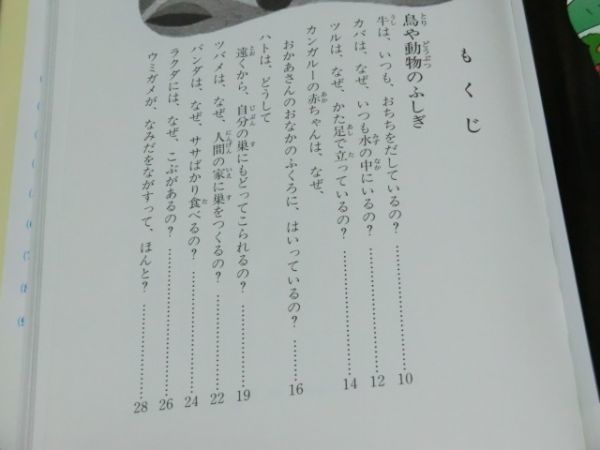 もくじ
鳥や動物のふしぎ
牛は、いつも、おちちをだしているの？ 10
カバは、なぜ、いつも水の中にいるの？ 12
ツルは、なぜ、かた足で立っているの？ 14
カンガルーの赤ちゃんは、なぜ、
おかあさんのおなかのふくろに、はいっているの？ 16
ハトは、どうして
遠くから、自分の巣にもどってこられるの？ 19
ツバメは、なぜ、人間の家に巣をつくるの？ 22
パンダは、なぜ、ササばかり食べるの？ 24
ラクダには、なぜ、こぶがあるの？ 26
ウミガメが、なみだをながすって、ほんと？ 28